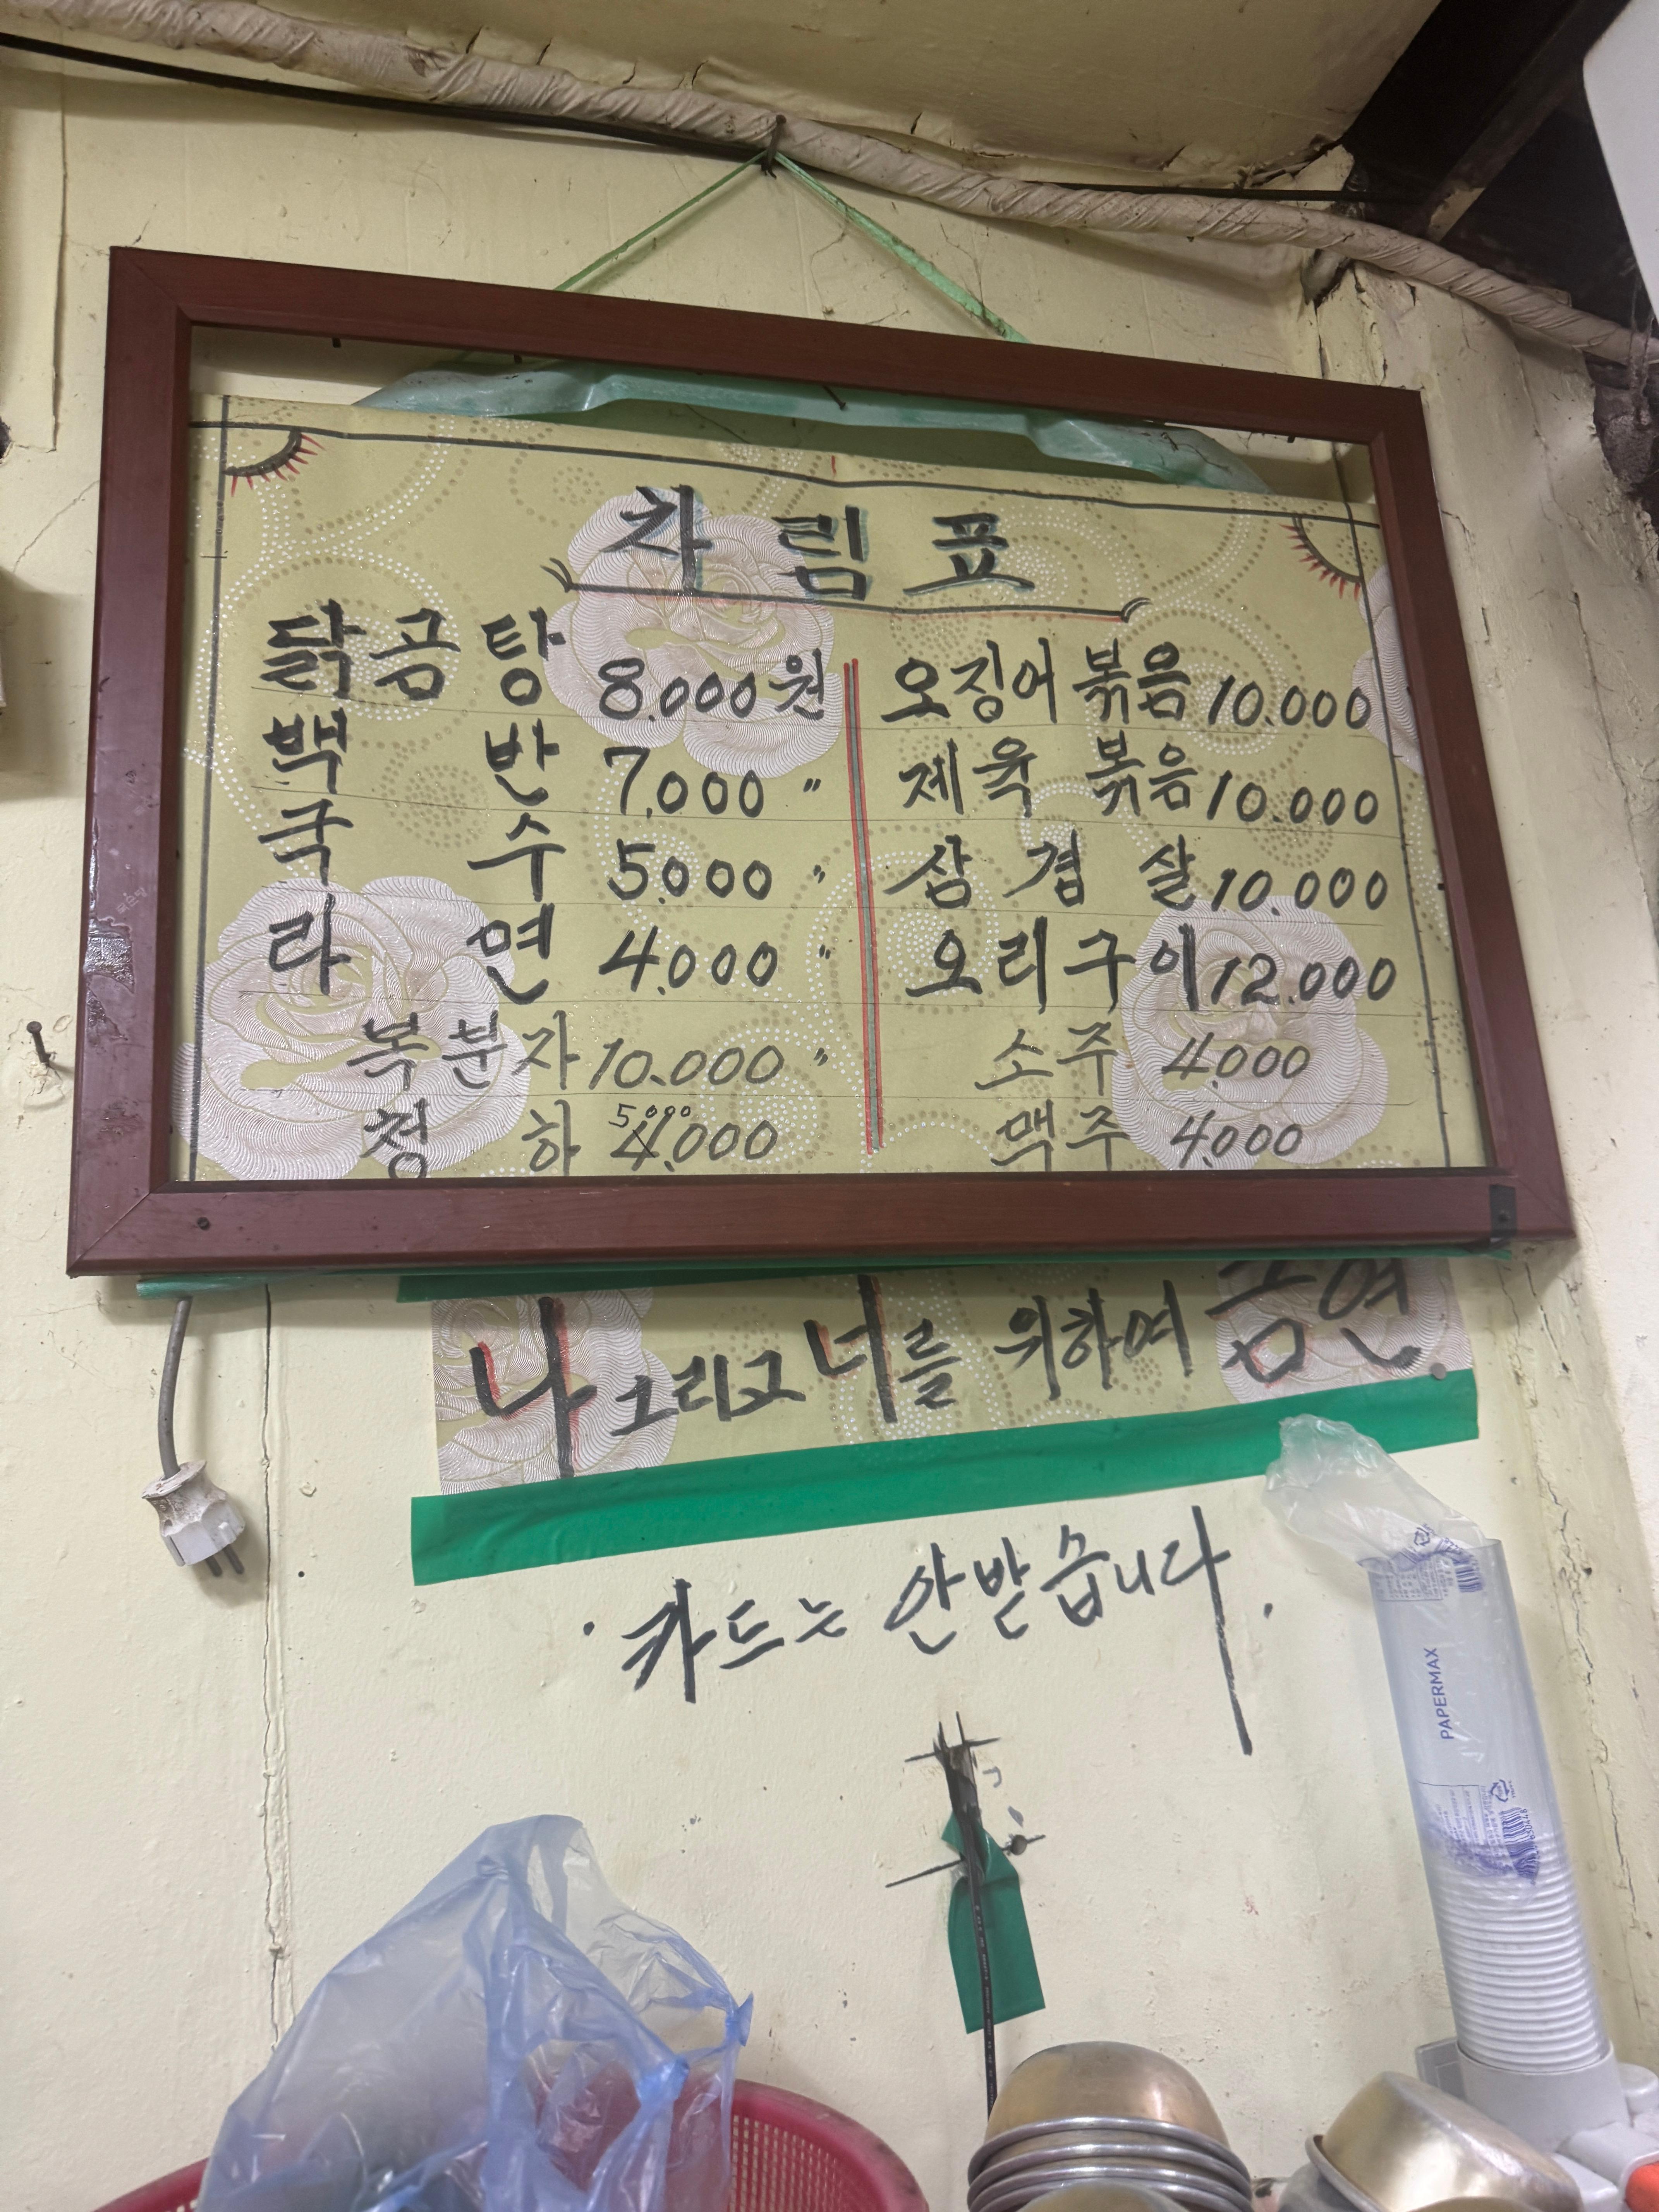 차림표
닭곰탕 8.000원
백반 7.000 〃
국수 5.000 〃
라면 4.000 〃
복분자 10.000 〃
청하 5000 4.000
오징어볶음 10.000
제육볶음 10.000
삼겹살 10.000
오리구이 12.000
소주 4.000
맥주 4.000
나 그리고 너를 위하여 금연
·카드는 안받습니다.
PAPERMAX